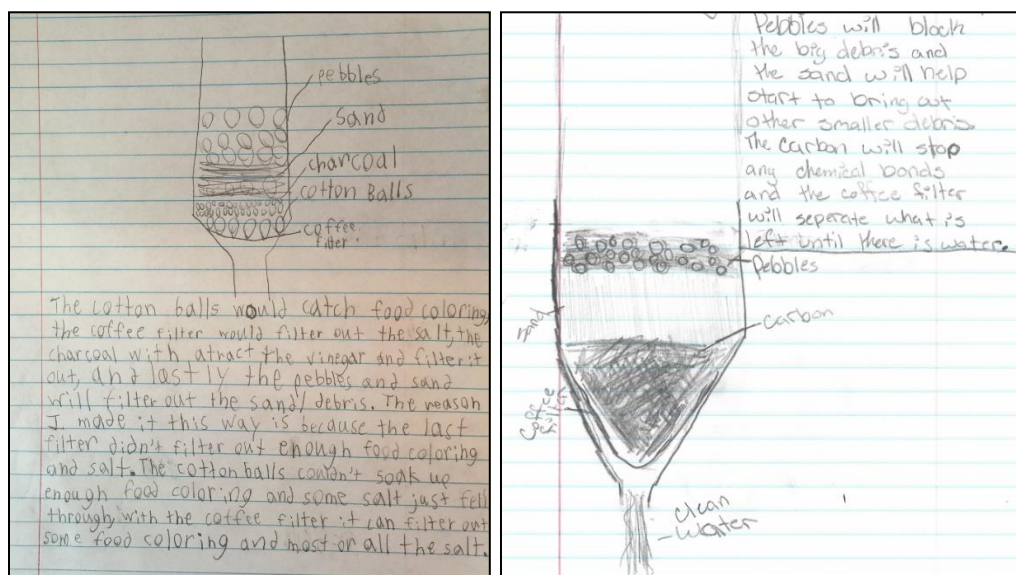 pebbles
Sand
charcoal
cotton Balls
coffee
filter
The cotton balls would catch food coloring,
the coffee filter would filter out the salt, the
charcoal with atract the vinegar and filter it
out, and lastly the pebbles and sand
will filter out the sand/debris. The reason
I made it this way is because the last
filter didn't filter out enough food coloring
and salt. The cotton balls couldn't soak up
enough food coloring and some salt just fell
through, with the coffee filter it can filter out
some food coloring and most or all the salt.
Pebbles will block
the big debris and
the sand will help
start to bring out
other smaller debris.
The carbon will stop
any chemical bonds
and the coffee filter
will seperate what is
left until there is water.
Pebbles
sand
carbon
coffee
filter
clean
water